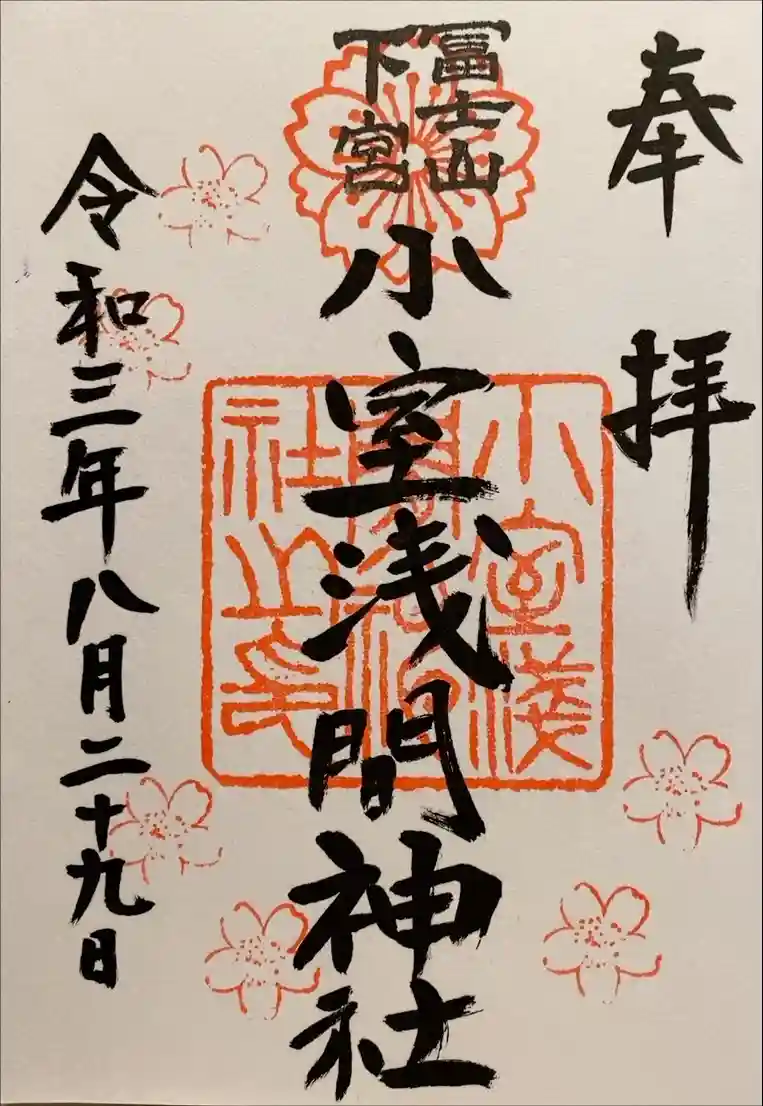 奉拝
冨士山
下宮
小室浅間神社
小室浅
間神
社之
令和三年八月二十九日